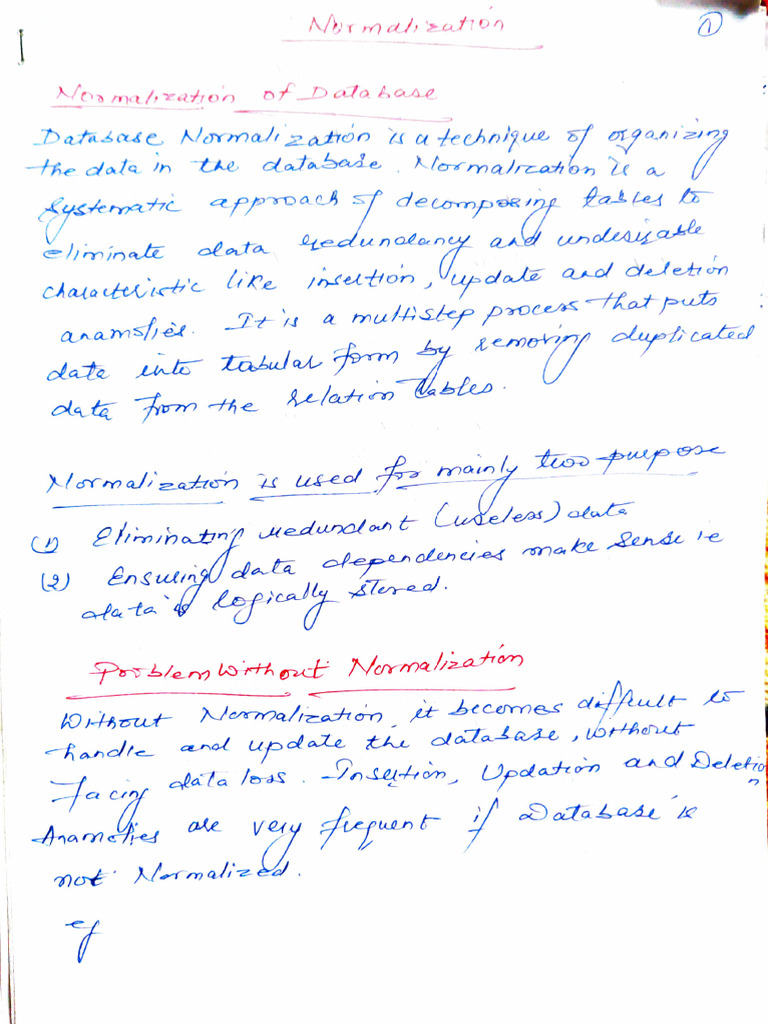 Normalization
1
Normalization of Database
Database Normalization is a technique of organizing
the data in the database. Normalization is a
systematic approach of decomposing tables to
eliminate data redundancy and undesirable
characteristic like insertion, update and deletion
anamolies. It is a multistep process that puts
data into tabular form by removing duplicated
data from the relation tables.
Normalization is used for mainly two purpose
(1) Eliminating redundant (useless) data
(2) Ensuring data dependencies make sense ie
data is logically stored.
Problem Without Normalization
Without Normalization, it becomes difficult to
handle and update the database, without
facing data loss. Insertion, Updation and Deletion
Anamolies are very frequent if Database is
not Normalized.
eg